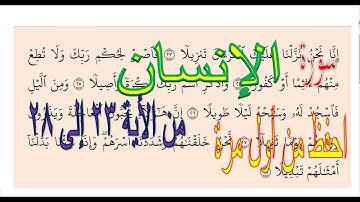 إِنَّا نَحْنُ نَزَّلْنَا عَلَيْكَ تَنزِيلًا ٢٣ فَاصْبِرْ لِحُكْمِ رَبِّكَ وَلَا تُطِعْ
سورة الإنسان
مِنْهُمْ أَوْ كَفُورًا وَاذْكُرِ اسْمَ رَبِّكَ بُكْرَةً وَأَصِيلًا ٢٥ وَمِنَ اللَّيْلِ
من الآية ٢٣ إلى ٢٨
فَاسْجُدْ لَهُ وَسَبِّحْهُ لَيْلًا طَوِيلًا ٢٦
احفظ من أول مرة
نَحْنُ خَلَقْنَاهُمْ وَشَدَدْنَا أَسْرَهُمْ وَإِذَا بَدَّلْنَا
أَمْثَالَهُمْ تَبْدِيلًا ٢٨